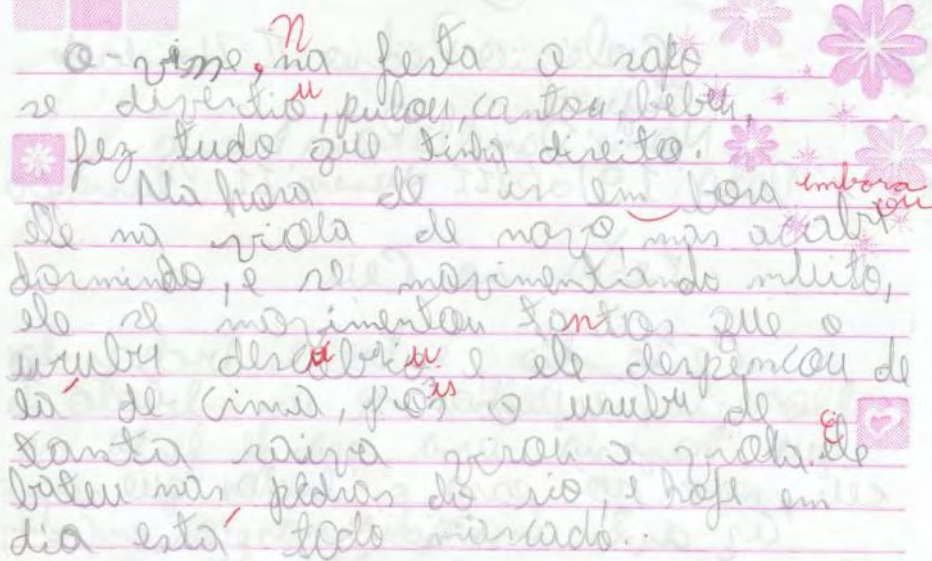 o-vime, na festa o sapo
se divertiu, pulou, cantou, bebeu,
fez tudo que tinha direito.
Na hora de ir em bora embora
ele na viola de novo, mas acabou
dormindo, e se movimentando muito,
ele se movimentou tantos que o
urubu descubriu e ele despencou de
lá de cima, pois o urubu de
tanta raiva virou a viola. Ele
bateu nas pedras do rio, e hoje em
dia está todo marcado..